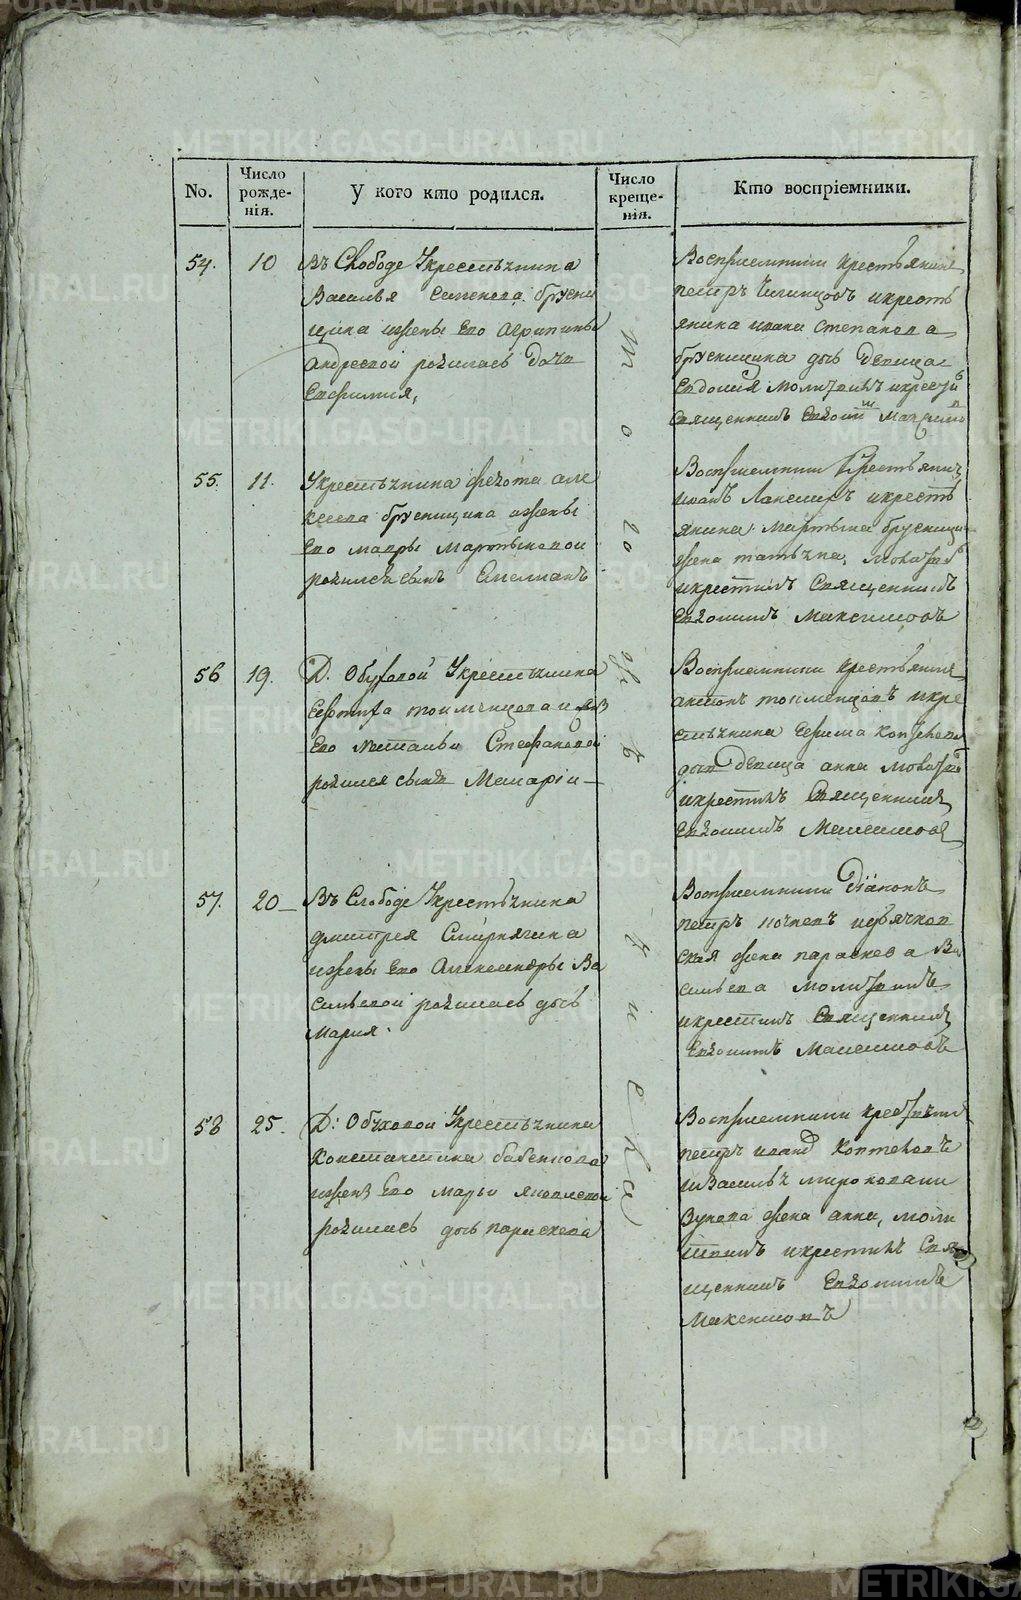 No.
Число рожденія.
У кого кто родился.
Число крещенія.
Кто воспріемники.
54.
10
Въ Слободе Укрестьянина
Василья Семенова брусни
цина ижены Его Агрипины
Андреевой родилась Дочь
Евфимия,
Восприемники крестьянинъ
петръ икресть
янина ивана степанова
брусницина дочь Девица
Евдокия молитвилъ икрестилъ
Священникъ Евдокимъ
55.
11.
Укрестьянина федота але
ксеева брусницина ижены
Его мавры Мартыновой
родился сынъ Емелианъ
Восприемники Крестьянинъ
иванъ икресть
янина Мартына брусницина
жена татьяна, молитвилъ
икрестилъ Священникъ
Евдокимъ Максимовъ
56
19.
Д. Обуховой Укрестьянина
тоименцова иженъ
Его Натальи Стефановой
родился сынъ Макарій
Восприемники крестьянинъ
антонъ тоименцовъ икре
стьянина Ефима
дочь Девица анна молитвилъ
икрестилъ Священникъ
Евдокимъ Максимовъ
57.
20
Въ Слободе Укрестьянина
дмитрея Смирнягина
ижены Его Александры Ва
сильевой родилась дочь
Мария.
Восприемники Діаконъ
петръ
ская жена параскева Ва
сильева молитвилъ
икрестилъ Священникъ
Евдокимъ Максимовъ
58
25.
Д: Обуховой Укрестьянина
Константина бабенкова
иженъ Его марьи яковлевой
родилась дочь параскева
Восприемники
петръ
иВасилья миронова
жена анна, моли
твилъ икрестилъ Свя
щенникъ Евдокимъ
Максимовъ
того же числа
METRIKI.GASO-URAL.RU